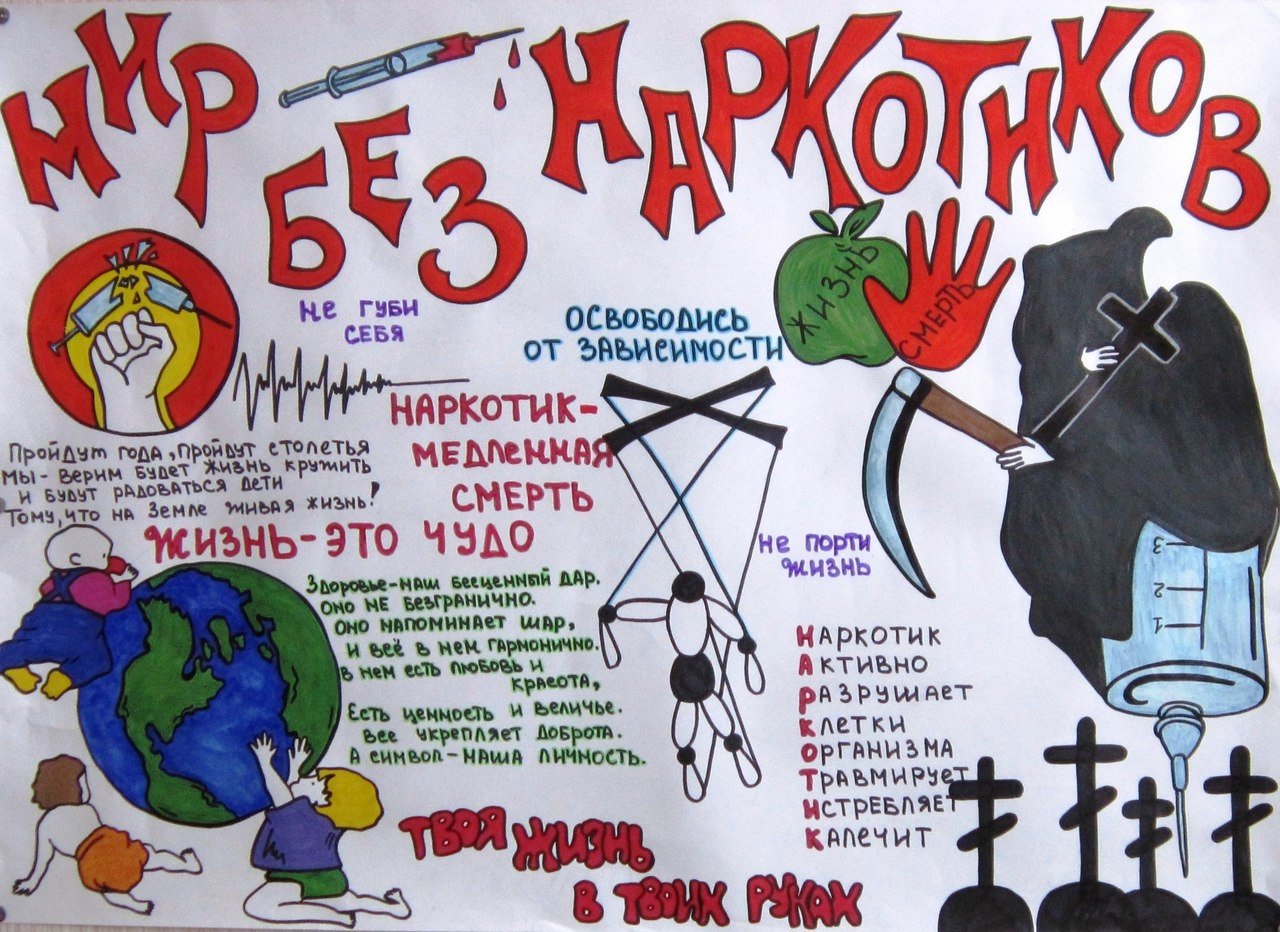 МИР БЕЗ НАРКОТИКОВ
НЕ ГУБИ
СЕБЯ
ОСВОБОДИСЬ
ОТ ЗАВИСИМОСТИ
ЖИЗНЬ
СМЕРТЬ
НАРКОТИК-
МЕДЛЕННАЯ
СМЕРТЬ
ПРОЙДУТ ГОДА, ПРОЙДУТ СТОЛЕТЬЯ
МЫ - ВЕРИМ БУДЕТ ЖИЗНЬ КРУЖИТЬ
И БУДУТ РАДОВАТЬСЯ ДЕТИ
ТОМУ, ЧТО НА ЗЕМЛЕ ЖИВАЯ ЖИЗНЬ!
ЖИЗНЬ-ЭТО ЧУДО
ЗДОРОВЬЕ-НАШ БЕСЦЕННЫЙ ДАР.
ОНО НЕ БЕЗГРАНИЧНО.
ОНО НАПОМИНАЕТ ШАР,
И ВСЁ В НЕМ ГАРМОНИЧНО.
В НЕМ ЕСТЬ ЛЮБОВЬ И
КРАСОТА,
ЕСТЬ ЦЕННОСТЬ И ВЕЛИЧЬЕ.
ВСЕ УКРЕПЛЯЕТ ДОБРОТА.
А СИМВОЛ-НАША ЛИЧНОСТЬ.
НЕ ПОРТИ
ЖИЗНЬ
НАРКОТИК
АКТИВНО
РАЗРУШАЕТ
КЛЕТКИ
ОРГАНИЗМА
ТРАВМИРУЕТ
ИСТРЕБЛЯЕТ
КАЛЕЧИТ
3
2
1
ТВОЯ ЖИЗНЬ
В ТВОИХ РУКАХ